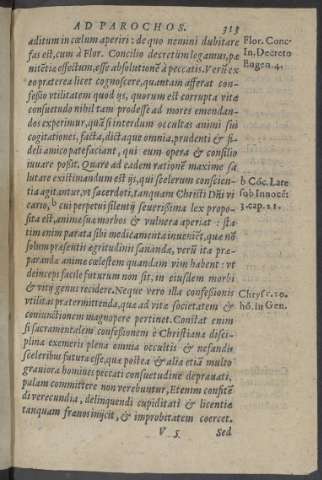 AD PAROCHOS. 313
aditum in cœlum aperiri: de quo nemini dubitare
fas est, cum à Flor. Concilio decretum legamus, pœ
nitẽtiæ effectum, esse absolutionẽ à peccatis. Verũ ex
eo præterea licet cognoscere, quantam afferat con-
fessio vtilitatem quod ijs, quorum est corrupta vitæ
consuetudo nihil tam prodesse ad mores emendan-
dos experimur, quã si interdum occultas animi sui
cogitationes, facta, dictaque omnia, prudenti & fi-
deli amico patefaciant, qui eum opera & consilio
iuuare possit. Quare ad eadem rationẽ maxime sa
lutare existimandum est ijs, qui scelerum conscien-
tia agitantur, vt sacerdoti, tanquam Christi Dñi vi
cario, b cui perpetui silentij seuerissima lex propo-
sita est, animæ suæ morbos & vulnera aperiat: sta
tim enim parata sibi medicamenta inuenièt, quæ nõ
solum præsentis ægritudinis sananda, verũ ita præ-
paranda animæ cœlestem quandam vim habent: vt
deincepi facile futurum non sit, in eiusdem morbi
& vitij genus recidere. Neque vero illa confessionis
vtilitas prætermittenda, quæ ad vitæ societatem &
coniunctionem magnopere pertinet. Constat enim
si sacramentalem confessionem è Christiana disci-
plina exemeris plena omnia occultis & nefandis
sceleribus futura esse, quæ postea & alia etiã multo
grauiora homines peccati consuetudine deprauati,
palam committere non verebuntur, Etenim confitẽ
di verecundia, delinquendi cupiditati & licentiæ
tanquam frænos inijcit, & improbitatem coercet.
V 5. Sed
Flor. Conc.
In, Decreto
Eugen. 4.
b Cóc. Late
sub Innocẽt
3. cap. 21.
Chrys. t. 10.
hõ. in Gen.